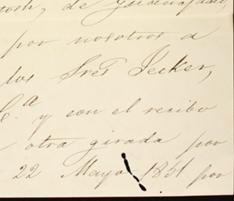 de Guadalajara,
por nosotros a
los Sres Jecker,
Ca y con el recibo
otra girada por
22 Mayo 1851 por